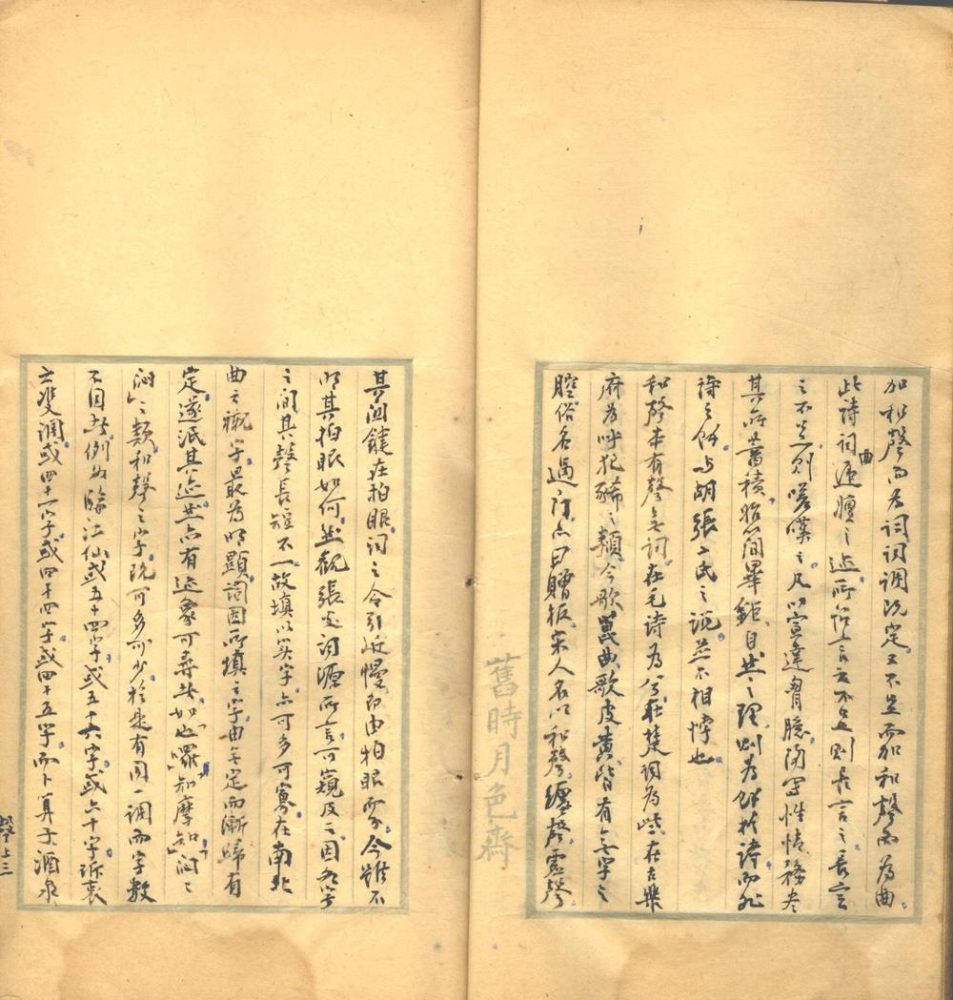 加和聲而為詞詞調既定又不足而加和聲而為曲
此詩詞曲遞嬗之迹所謂言之不足則長言之長言
之不足則嗟嘆之凡以宣達胸臆陶寫性情務盡
其所蓄積始簡畢鉅自然之理則為餘於詩而非
詩之餘與胡張二氏之說並不相悖也
和聲本有聲無詞在毛詩為兮在楚詞為些在古樂
府為呼犯豨之類今歌崑曲歌皮黃皆有無字之
腔俗名過門亦曰贈板宋人名以和聲纏聲虛聲
舊時月色齋
其関鍵在拍眼詞之令引近慢即由拍眼而分今雖不
明其拍眼如何然觀張炎詞源所言可窺及之因為字
之間其聲長短不一故填以實字亦可多可寡在南北
曲之襯字最為明顯詞因所填之字由無定而漸歸有
定遂泯其迹然亦有迹象可尋者如也囉知摩知訶之
訶之類和聲之字既可多可少於是有同一調而字數
不同者例如臨江仙或五十四字或五十六字或六十字訴衷
之雙調或四十一字或四十四字或四十五字而卜算子酒泉
聲上三